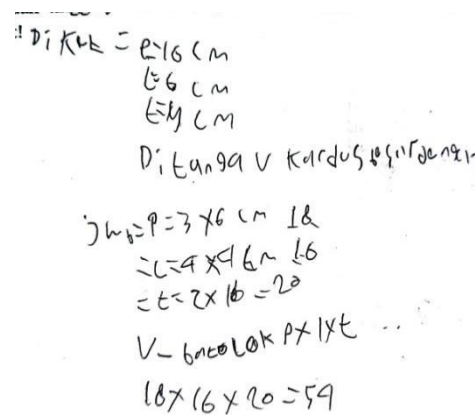 Diket = P=16 cm
l=6 cm
t=4 cm
Ditanya V kardus besar
Jwb=P=3 x6 cm 18
=l=4 x4 cm 16
=t=2x 10 =20
V- balok Pxlxt ..
18x16x20=54